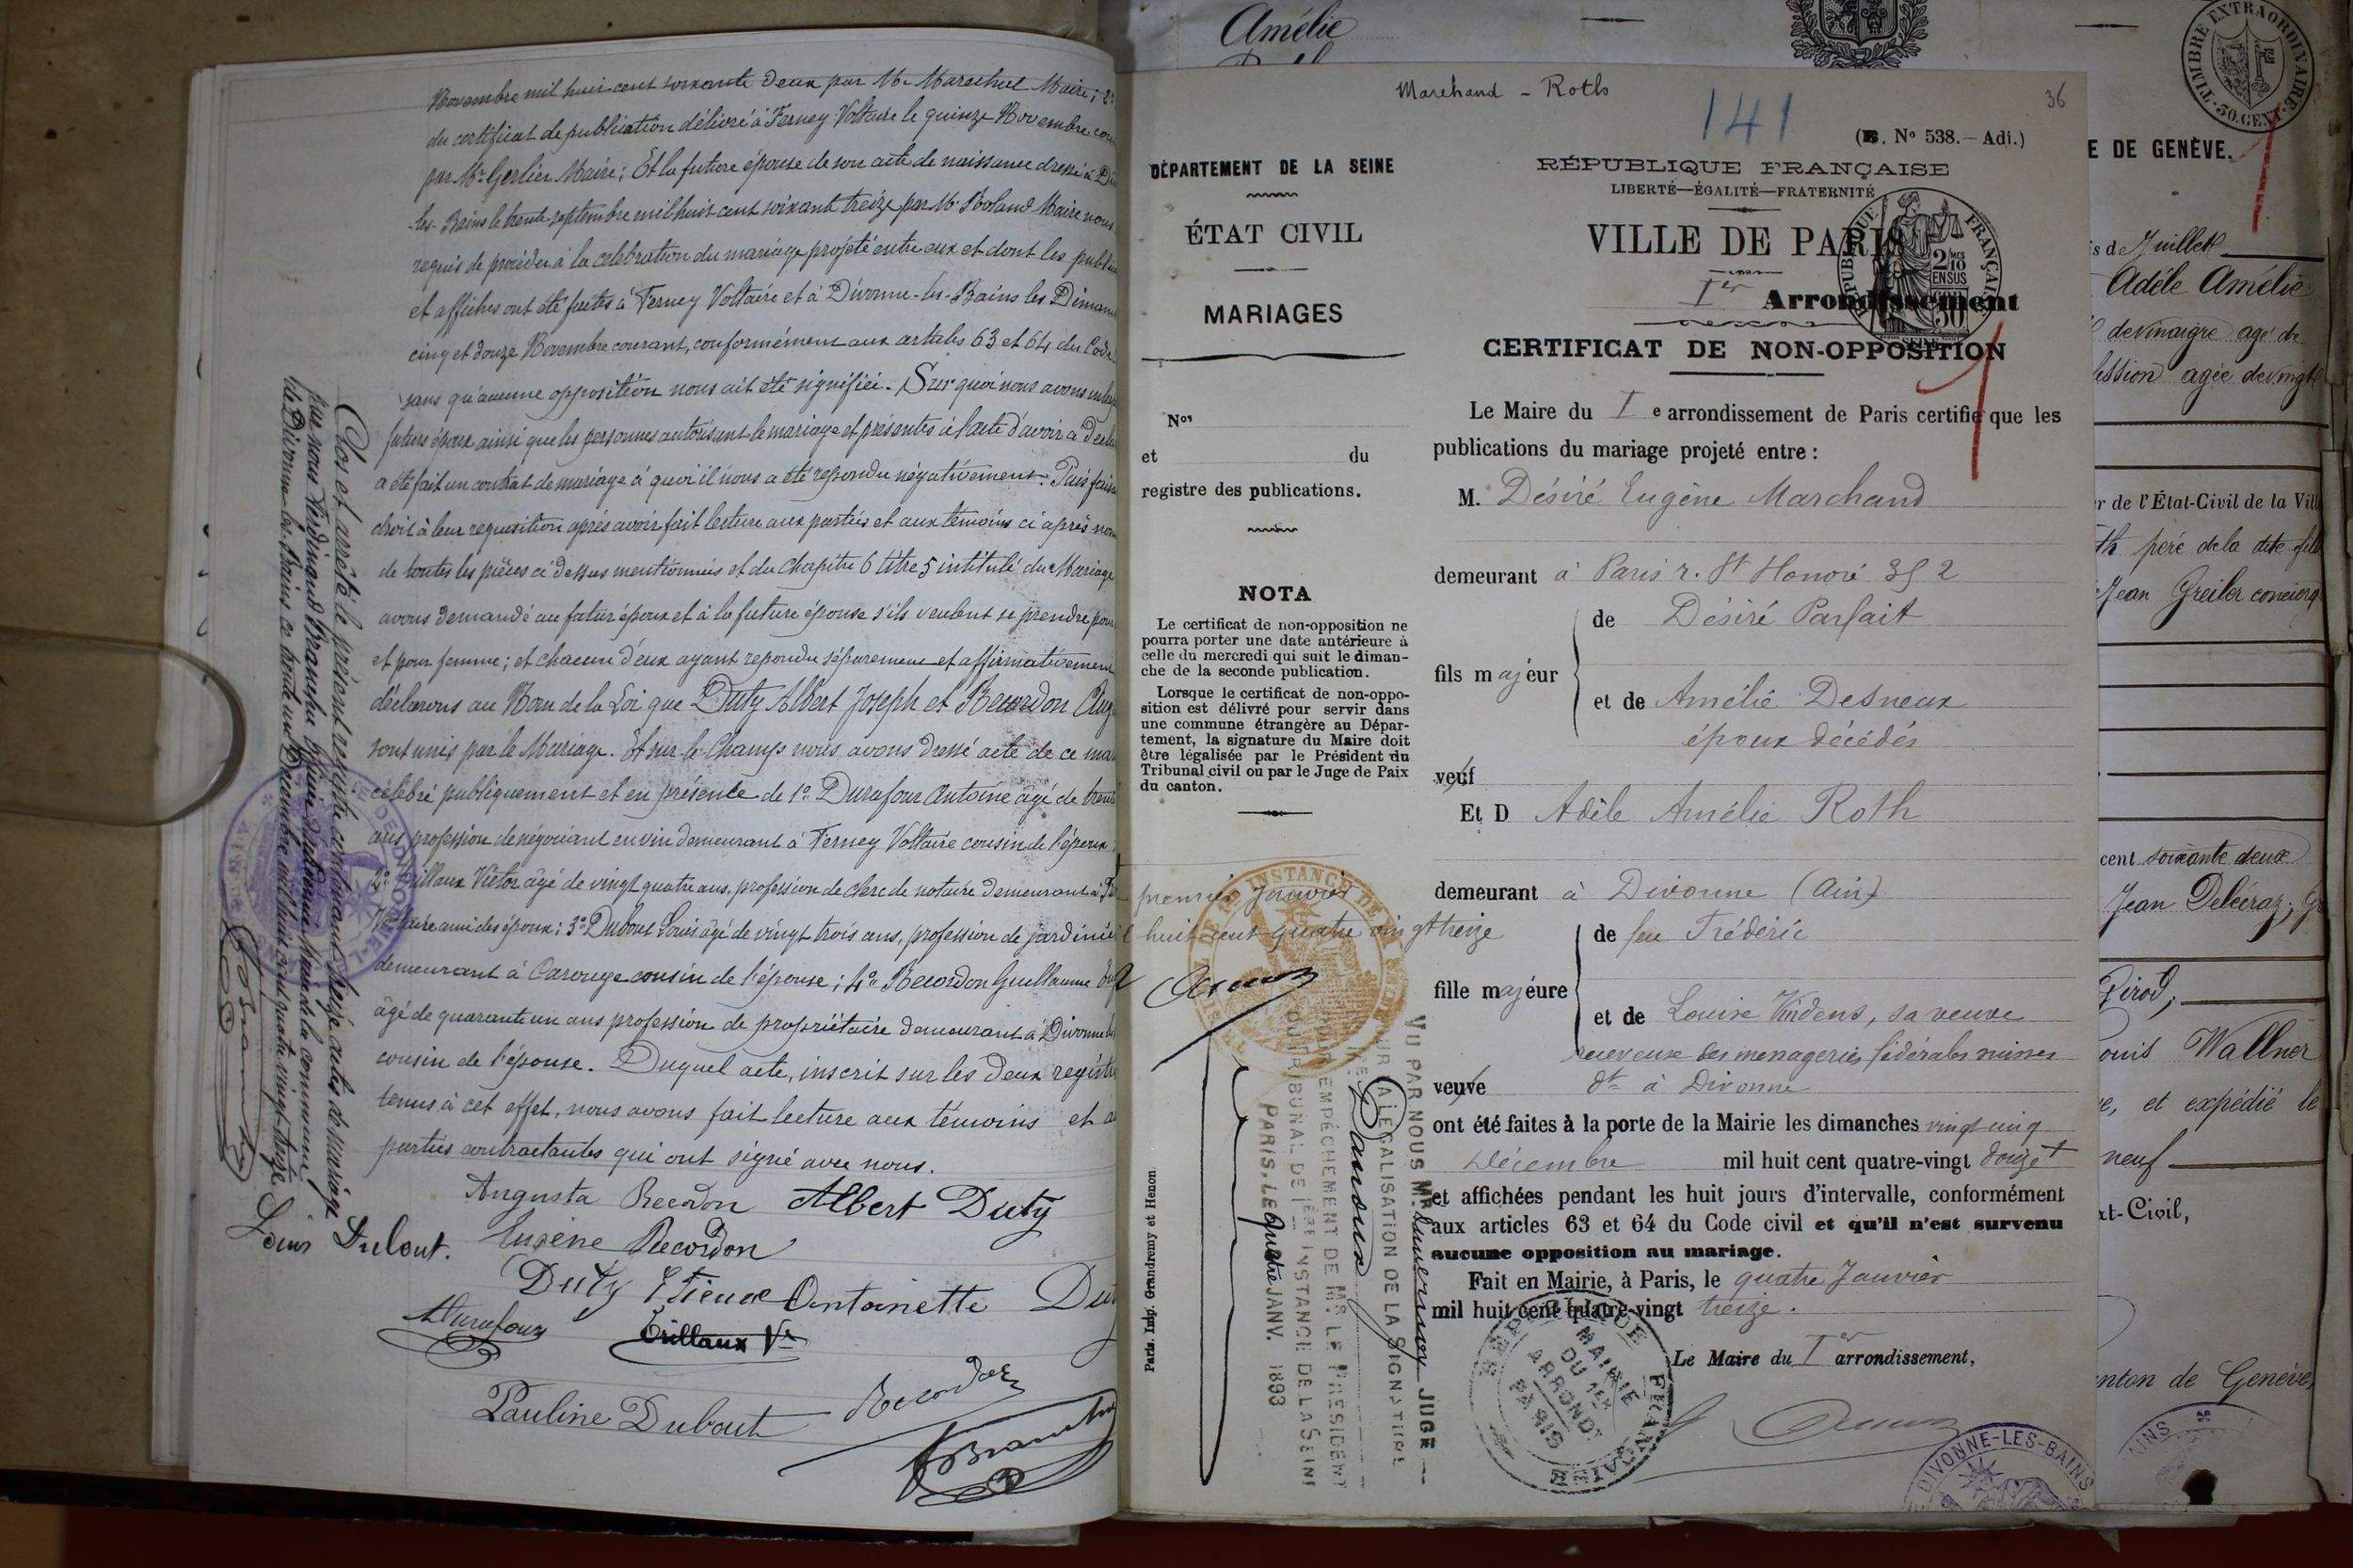 Novembre mil huit cent soixante deux par Mr Marechal Maire; 2º
du certificat de publication délivré à Ferney-Voltaire le quinze Novembre
par Mr Gerlier Maire; Et la future épouse de son acte de naissance dressé à
-les-Bains le trente septembre mil huit cent soixant treize par Mr Rooland Maire nous
requis de procéder à la célébration du mariage projeté entre eux et dont les
et affiches ont été faites à Ferney Voltaire et à Divonne-les-Bains les
cinq et douze Novembre courant, conformément aux articles 63 et 64 du Code
sans qu'aucune opposition nous ait été signifiée. Sur quoi nous avons
futurs époux ainsi que les personnes autorisant le mariage et présentes à l'acte d'avoir à
a été fait un contrat de mariage à quoi il nous a été repondu négativement. Puis
droit à leur requisition après avoir fait lecture aux parties et aux témoins ci après
de toutes les pièces ci dessus mentionnées et du chapitre 6 titre 5 intitulé du Mariage
avons demandé au futur époux et à la future épouse s'ils veulent se prendre pour
et pour femme; et chacun d'eux ayant repondu séparement et affirmativement
déclarons au Nom de la Loi que Duty Albert Joseph et Recordon
sont unis par le Mariage. Et sur-le-Champs nous avons dressé acte de ce
célébré publiquement et en présence de 1º Durafour Antoine âgé de
ans profession de négociant en vin demeurant à Ferney Voltaire cousin de l'époux
2º Trillaux Victor âgé de vingt quatre ans, profession de clerc de notaire demeurant à
Voltaire ami des époux; 3º Dubout Louis âgé de vingt trois ans, profession de
demeurant à Carouge cousin de l'épouse; 4º Recordon Guillaume
âgé de quarante un ans profession de propriétaire demeurant à Divonne
cousin de l'épouse. Duquel acte, inscrit sur les deux
tenus à cet effet, nous avons fait lecture aux témoins et
parties contractantes qui ont signé avec nous.
Augusta Recordon Albert Duty
Louis Dubout. Eugène Recordon
Duty Etienne Antoinette
ADurafour Trillaux Vr
Pauline Dubout Recordon
Clos et arrêté le présent registre contenant treize actes de mariage
par nous Ferdinand Branchu officier Maire de la commune
de Divonne-les-Bains ce trente un Décembre mil huit cent quatre vingt treize
Amélie
Marchand - Roth
36
141
(B. Nº 538.-Adj.)
DÉPARTEMENT DE LA SEINE
ÉTAT CIVIL
MARIAGES
Nos
et du
registre des publications.
NOTA
Le certificat de non-opposition ne
pourra porter une date antérieure à
celle du mercredi qui suit le diman-
che de la seconde publication.
Lorsque le certificat de non-oppo-
sition est délivré pour servir dans
une commune étrangère au Dépar-
tement, la signature du Maire doit
être légalisée par le Président du
Tribunal civil ou par le Juge de Paix
du canton.
premier Janvier
huit cent quatre vingt treize
Paris. Imp. Grandremy et Henon
VU PAR NOUS MR Duvernoy JUGE
POUR LÉGALISATION DE LA SIGNATURE
DE Mr
EMPÊCHEMENT DE MR LE PRÉSIDENT
DU TRIBUNAL DE 1ÈRE INSTANCE DE LA SEINE
PARIS, LE Quatre JANV. 1893
RÉPUBLIQUE FRANÇAISE
LIBERTÉ—ÉGALITÉ—FRATERNITÉ
VILLE DE PARIS
Ier Arrondissement
RÉPUBLIQUE FRANÇAISE
2/10 EN SUS
50
CERTIFICAT DE NON-OPPOSITION
Le Maire du I e arrondissement de Paris certifie que les
publications du mariage projeté entre :
M. Désiré Eugène Marchand
demeurant à Paris r. St Honoré 352
de Désiré Parfait
fils majeur
et de Amélie Desneux
époux décédés
veuf
Et D Adèle Amélie Roth
demeurant à Divonne (Ain)
de feu Frédéric
fille majeure
et de Louise Vindens, sa veuve
receveuse des messageries fédérales suisses
veuve dt à Divonne
ont été faites à la porte de la Mairie les dimanches vingt cinq
Décembre mil huit cent quatre-vingt douze
et affichées pendant les huit jours d'intervalle, conformément
aux articles 63 et 64 du Code civil et qu'il n'est survenu
aucune opposition au mariage.
Fait en Mairie, à Paris, le quatre Janvier
mil huit cent quatre-vingt treize.
Le Maire du Ier arrondissement,
RÉPUBLIQUE FRANÇAISE
MAIRIE
DU 1ER
ARRONDT
PARIS
DIVONNE-LES-BAINS
TIMBRE EXTRAORDINAIRE
50. CENT.
E DE GENÈVE.
s de Juillet
Adéle Amélie
de vinaigre agé de
ession agée de vingt
r de l'État-Civil de la Vil
th père de la dite fille
Jean Greiler concierge
cent soixante deux
Jean Delécraz,
Girod,
ouis Wallner
e, et expédié le
neuf
at-Civil,
nton de Genève,
AINS